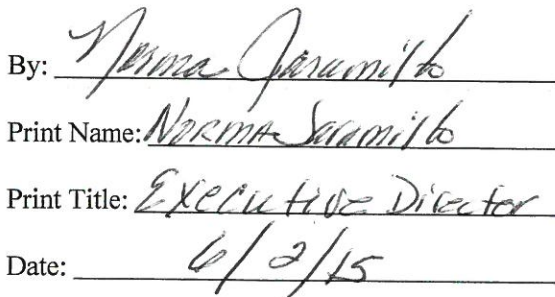 By: Norma Jaramillo
Print Name: Norma Jaramillo
Print Title: Executive Director
Date: 6/2/15